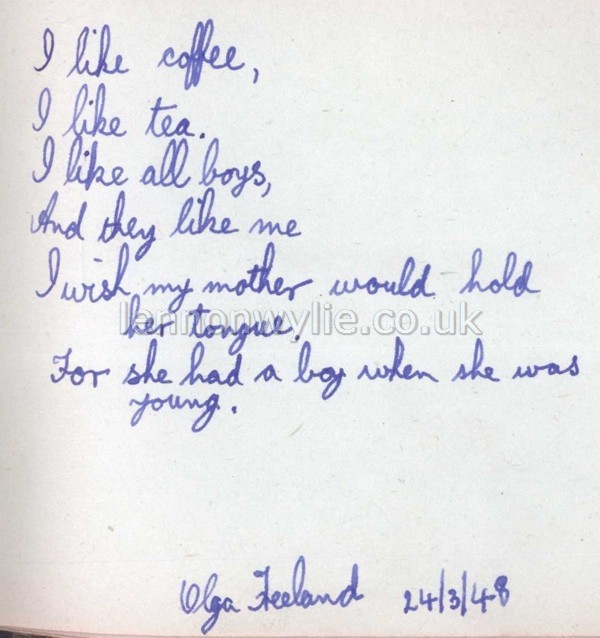 I like coffee,
I like tea.
I like all boys,
And they like me
I wish my mother would hold
her tongue.
lennonwylie.co.uk
For she had a boy when she was
young.
Olga Freeland 24/3/48